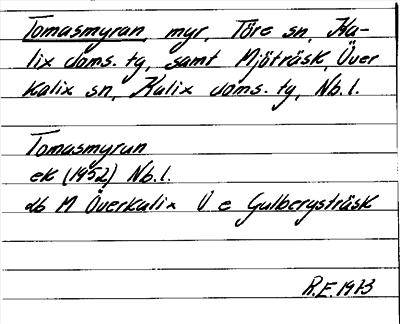 Tomasmyran, myr, Töre sn, Ka-
lix doms. tg, samt Mjöträsk, Över
kalix sn, Kalix doms. tg, Nb.l.
Tomasmyran
ek (1952) Nb.l.
db M Överkalix V e Gulbergsträsk
R.E. 1973